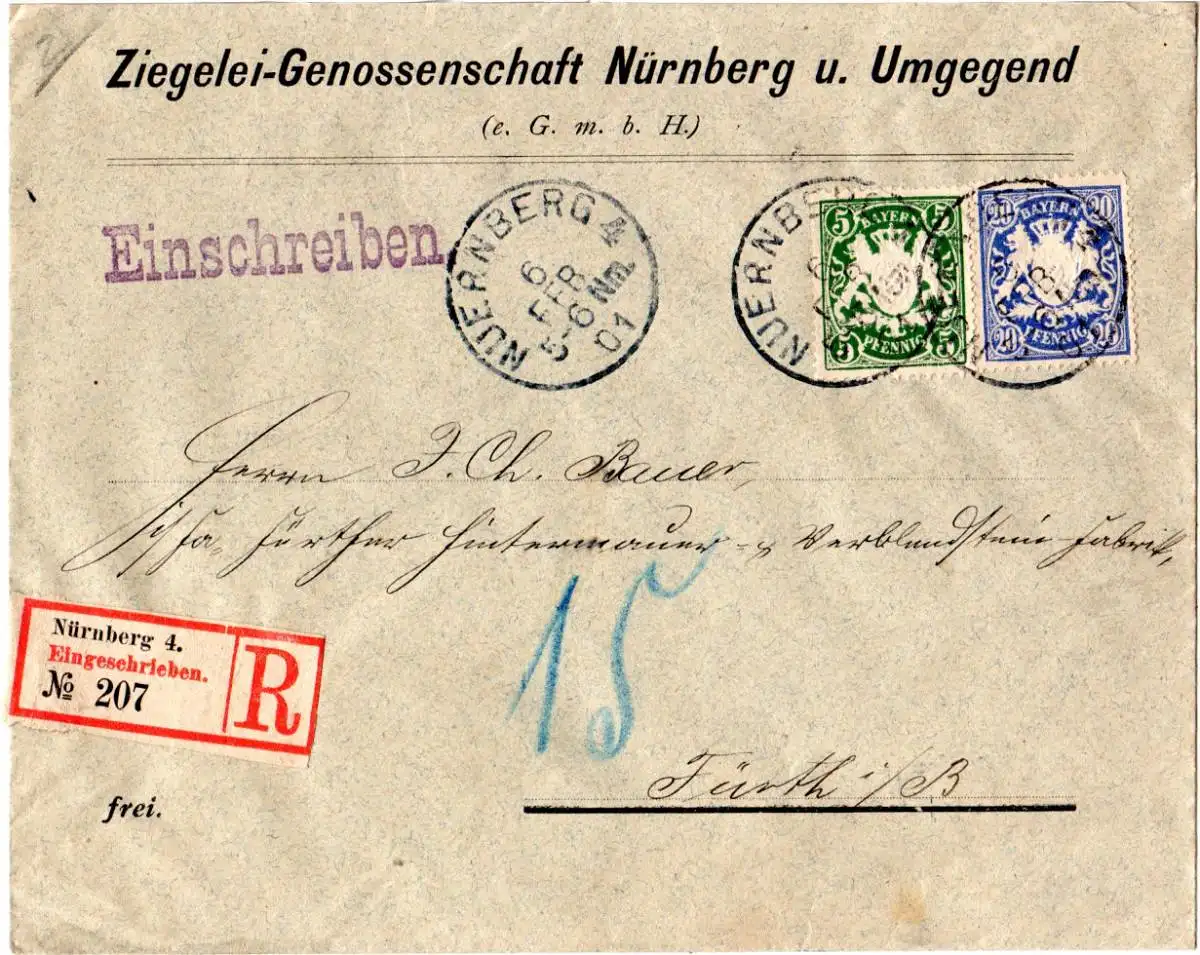 Ziegelei-Genossenschaft Nürnberg u. Umgegend
(e. G. m. b. H.)
Einschreiben
NUERNBERG 4
6
FEB
5-6 Nm.
01
NUERNBERG
5 BAYERN 5
5 PFENNIG 5
20 BAYERN 20
20 PFENNIG 20
Herrn J. Ch. Bauer,
Fa. Fürther Hintermauer- & Verblendstein-Fabrik,
15
Nürnberg 4.
Eingeschrieben.
№ 207
R
Fürth i/B
frei.